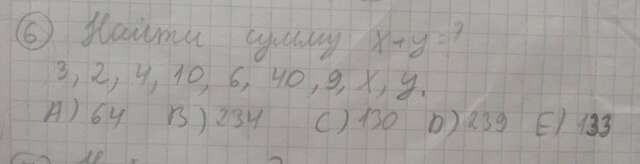 6 Найти сумму x+y=?
3, 2, 4, 10, 6, 40, 9, x, y.
A) 64 B) 234 C) 130 D) 239 E) 133